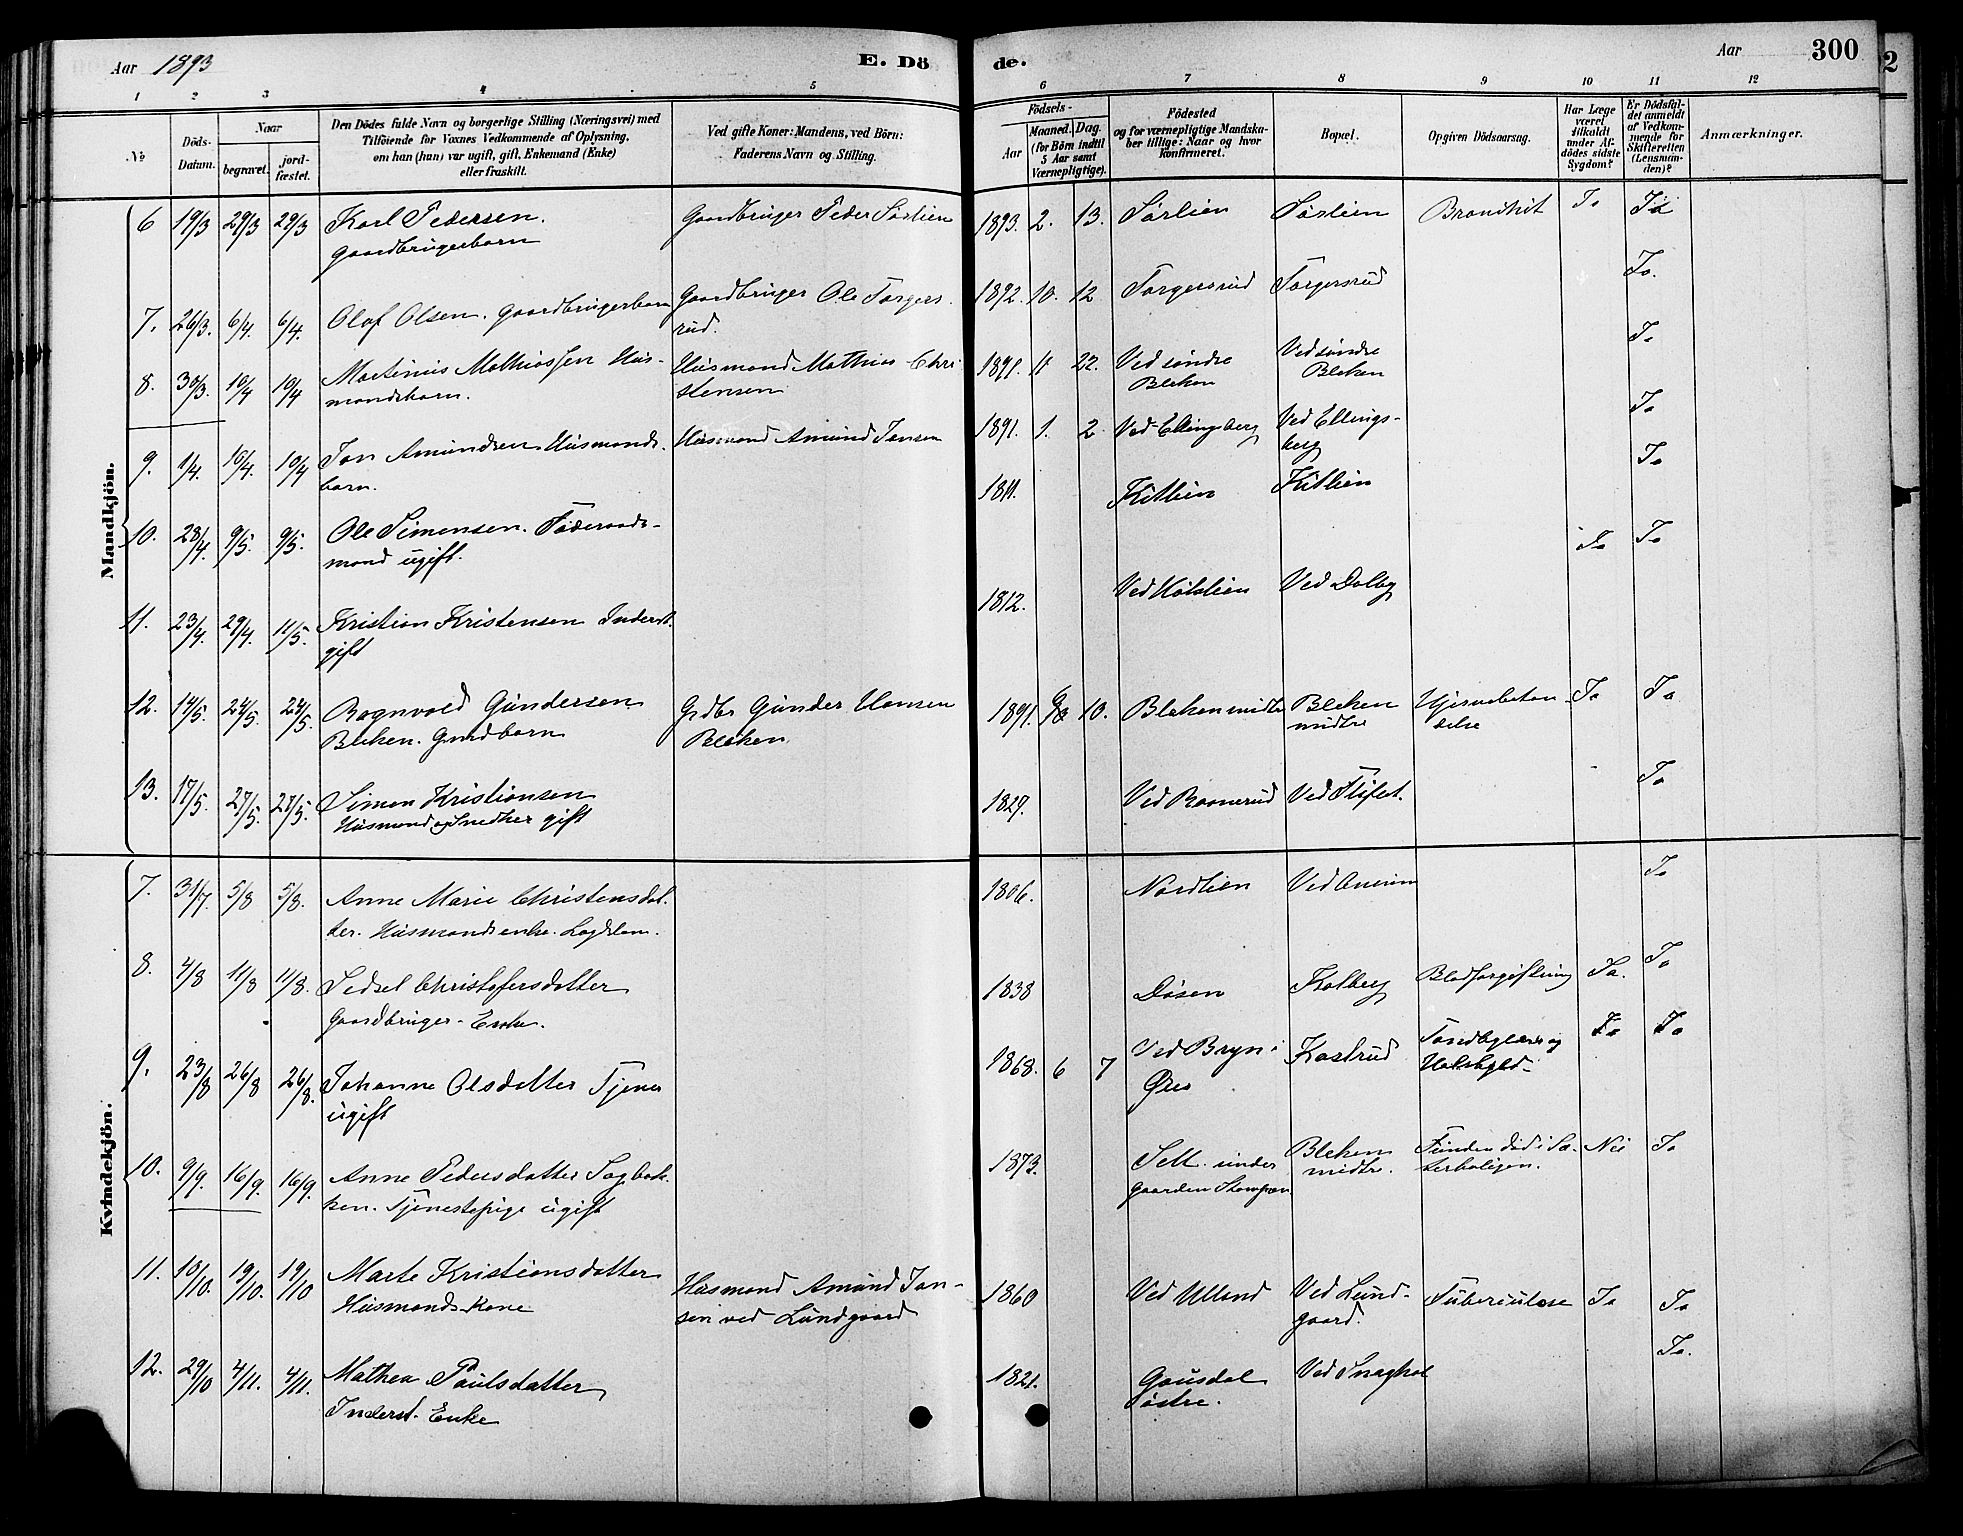 Aar 1893
E. Dö
de.
Aar
300
2
1 2 3 4 5 6 7 8 9 10 11 12
No
Döds-
Datum.
Naar
begravet.
jord-
fæstet.
Den Dödes fulde Navn og borgerlige Stilling (Næringsvei) med
Tilföiende for Voxnes Vedkommende af Oplysning,
om han (hun) var ugift, gift, Enkemand (Enke)
eller fraskilt.
Ved gifte Koner: Mandens, ved Börn:
Faderens Navn og Stilling.
Födsels-
Aar
Maaned. Dag.
(for Börn indtil
5 Aar samt
Værnepligtige).
Födested
og for værnepligtige Mandska-
ber tillige: Naar og hvor
konfirmeret.
Bopæl.
Opgiven Dödsaarsag.
Har Læge
været
tilkaldt
under Af-
dödes sidste
Sygdom?
Er Dödsfal-
det anmeldt
af Vedkom-
mende for
Skifteretten
(Lensman-
den)?
Anmærkninger.
Mandkjön.
6 19/3 29/3 29/3 Karl Pedersen. Gaardbruger Peder Sörlien 1893. 2. 13. Sörlien Sörlien Bronchit Ja Ja
Gaardbrugerbarn
7. 26/3. 6/4. 6/4. Olaf Olsen. Gaardbrugerbarn Gaardbruger Ole Torgers- 1892. 10. 12 Torgersrud Torgersrud Ja.
rud.
8. 30/3. 10/4 10/4 Martinius Mathiassen Hus- Husmand Mathias Chri- 1891. 11 22. Ved söndre Ved söndre Ja
mandsbarn. stensen Bleken Bleken
9. 1/4. 10/4. 10/4 Jon Amundsen Husmands- Husmand Amund Jonsen 1891. 1. 2. Ved Ellingsberg Ved Ellings- Ja
barn. berg
10. 28/4. 9/5. 9/5. Ole Simensen. Föderaads- 1811. Kitlien Kitlien Ja
mand ugift.
11. 23/4. 29/4. 11/5. Kristian Kristensen Inderst. 1812. Ved Ved Dalby Ja Ja
gift
12. 14/5. 24/5. 24/5. Ragnvald Gundersen Grdbr Gunder Hansen 1891. 10. Bleken midtre Bleken Hjernebetæn- Ja Ja
Bleken. Grndbarn Bleken. midtre delse
13. 17/5. 27/5. 27/5. Simen Kristiansen 1829. Ved Baanerud Ved Ja
Husmand og Snedker gift
Kvindekjön.
7. 31/7. 5/8 5/8. Anne Marie Christensdat- 1806. Nordlien Ved Ja
ter. Husmandsenke. Lægdslem.
8. 4/8 11/8 11/8. Sidsel Christofersdatter 1838 Dösen Kolberg Blodforgiftning Ja. Ja
Gaardbruger-Enke.
9. 23/8 26/8 26/8. Johanne Olsdatter Tjener 1868. 6 7 Ved Bryn i Kastrud Tandbyld og Ja Ja
ugift Øier Halsbyld.
10. 9/9. 16/9. 16/9. Anne Pedersdatter Sagbak- 1873. Sell. under Bleken Funden död i Sæ- Nei Ja
ken. Tjenestepige ugift gaarden midtre. terboligen.
11. 10/10. 19/10. 19/10 Marte Kristiansdatter Husmand Amund Jon- 1860 Ved Ulland Ved Lund- Tuberculose Ja Ja
Husmands Kone sen ved Lundgaard gaard.
12. 29/10 4/11. 4/11. Mathea Paulsdatter 1821. Gausdal Ved Ja.
Inderst. Enke Östre.